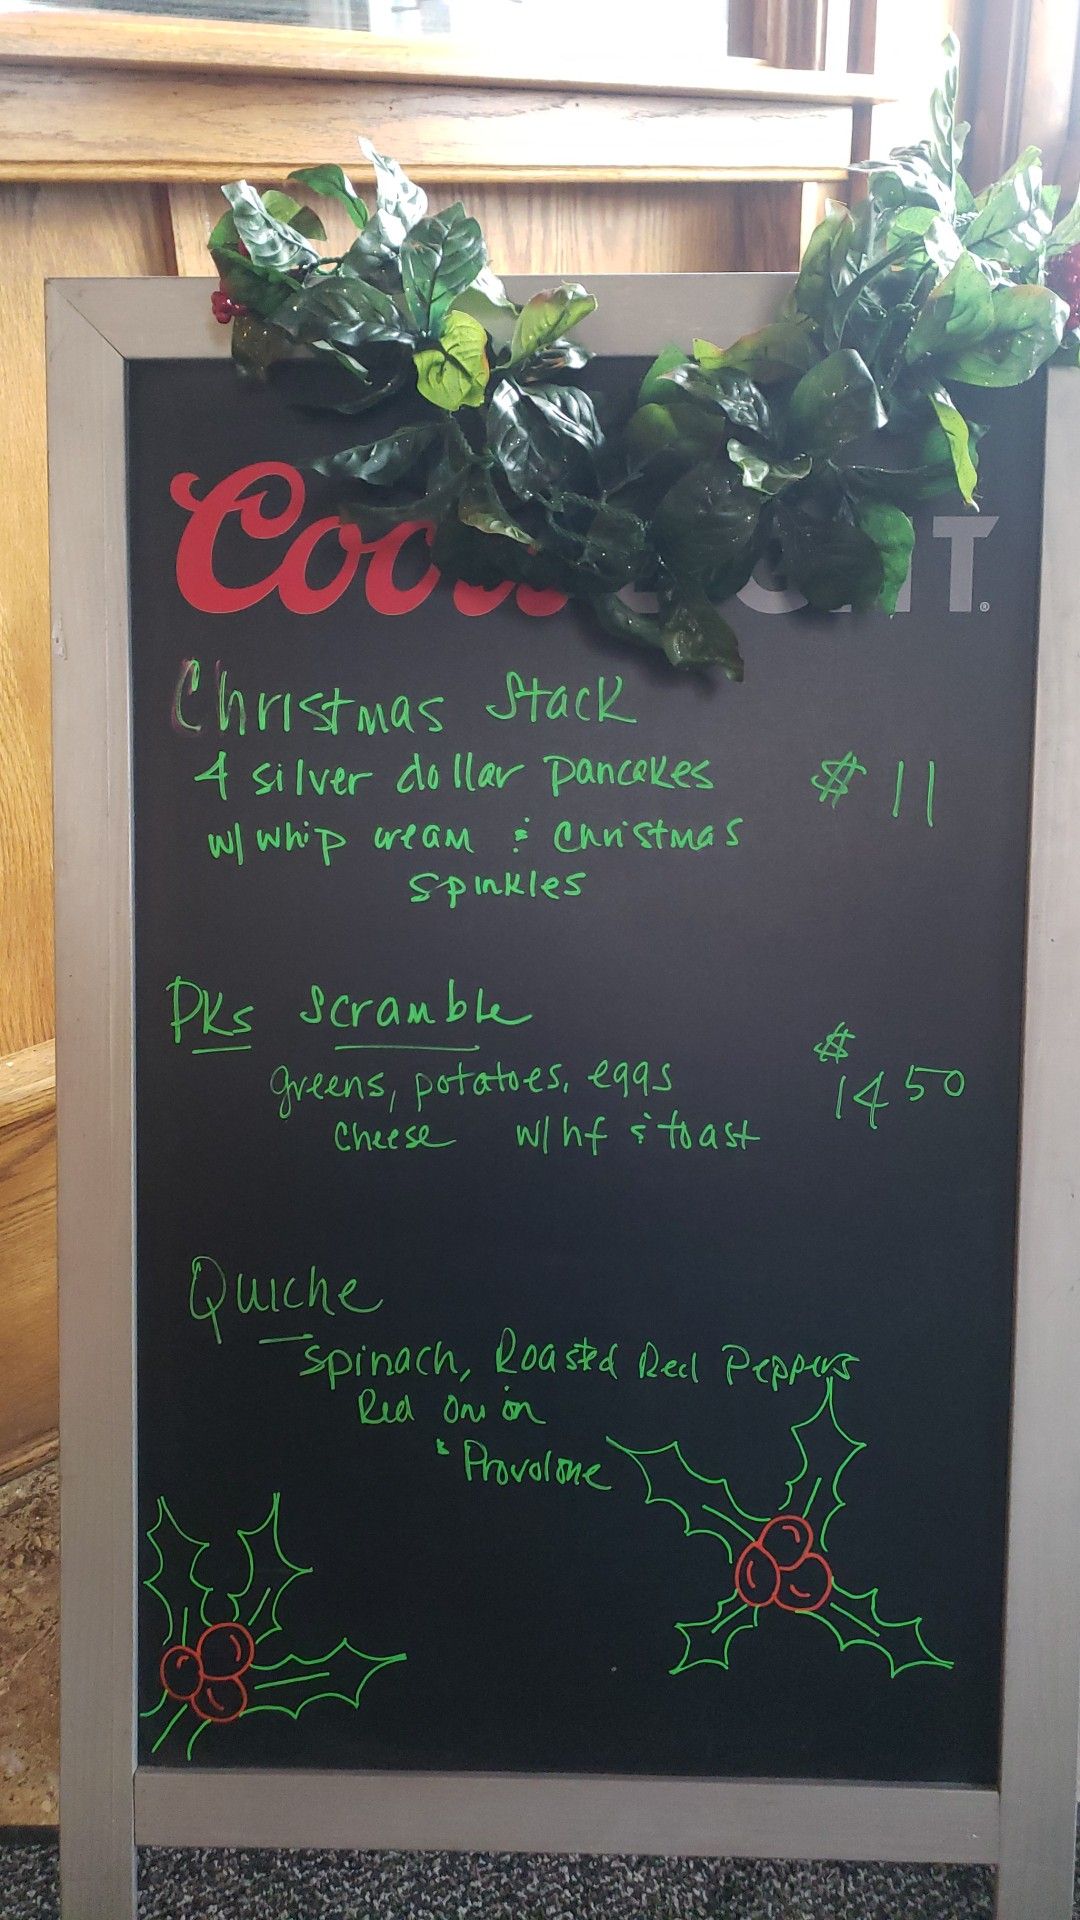 Coors LIGHT®
Christmas Stack
4 silver dollar pancakes $11
w/ whip cream & Christmas
spinkles
PKs Scramble
greens, potatoes, eggs $14 50
cheese w/ hf & toast
Quiche
Spinach, Roasted Red Peppers
Red Onion
& Provolone